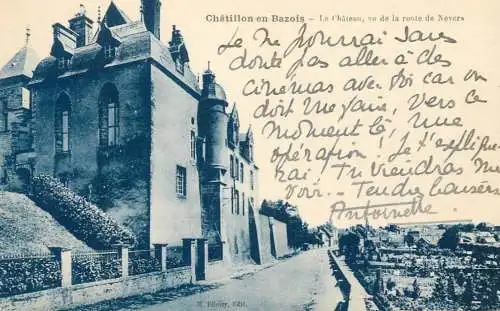 Châtillon-en-Bazois — Le Château, vu de la route de Nevers
Je ne pourrai sans
doute pas aller à des
cinémas avec toi car on
doit me faire, vers ce
moment là, une
opération! Je t'explique-
rai. Tu viendras me
voir. - Tendres baisers
Antoinette
Edit.